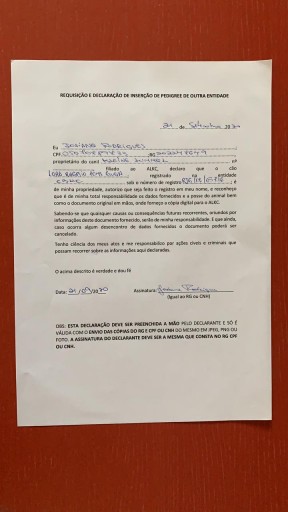 REQUISIÇÃO E DECLARAÇÃO DE INSERÇÃO DE PEDIGREE DE OUTRA ENTIDADE
de Setembro 2020
Eu Rodrigues
CPF RG
proprietário do canil nº
filiado ao ALKC, declaro que o cão
registrado na entidade
sob o número de registro , é
de minha propriedade, autorizo que seja feito o registro em meu nome, e reconheço
que é de minha total responsabilidade os dados fornecidos e a posse do animal bem
como o documento original em mãos, onde forneço a cópia digital para o ALKC.
Sabendo-se que quaisquer causas ou consequências futuras recorrentes, oriundos por
informações deste documento fornecido, serão de minha responsabilidade. E que ainda,
caso ocorra algum desencontro de dados fornecidos o documento poderá ser
cancelado.
Tenho ciência dos meus atos e me responsabilizo por ações cíveis e criminais que
possam recorrer sobre as informações aqui declaradas.
O acima descrito é verdade e dou fé
Data: 21/09/2020 Assinatura:
(Igual ao RG ou CNH)
OBS: ESTA DECLARAÇÃO DEVE SER PREENCHIDA A MÃO PELO DECLARANTE E SÓ É
VÁLIDA COM O ENVIO DAS CÓPIAS DO RG E CPF OU CNH DO MESMO EM JPEG, PNG OU
FOTO. A ASSINATURA DO DECLARANTE DEVE SER A MESMA QUE CONSTA NO RG CPF
OU CNH.